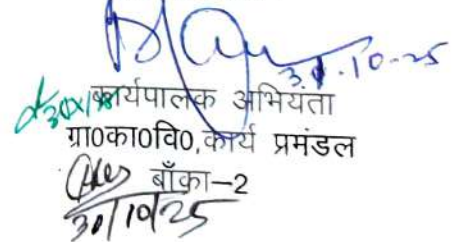 30.10-25
कार्यपालक अभियंता
ग्रा०का०वि०,कार्य प्रमंडल
बाँका-2
30/10/25